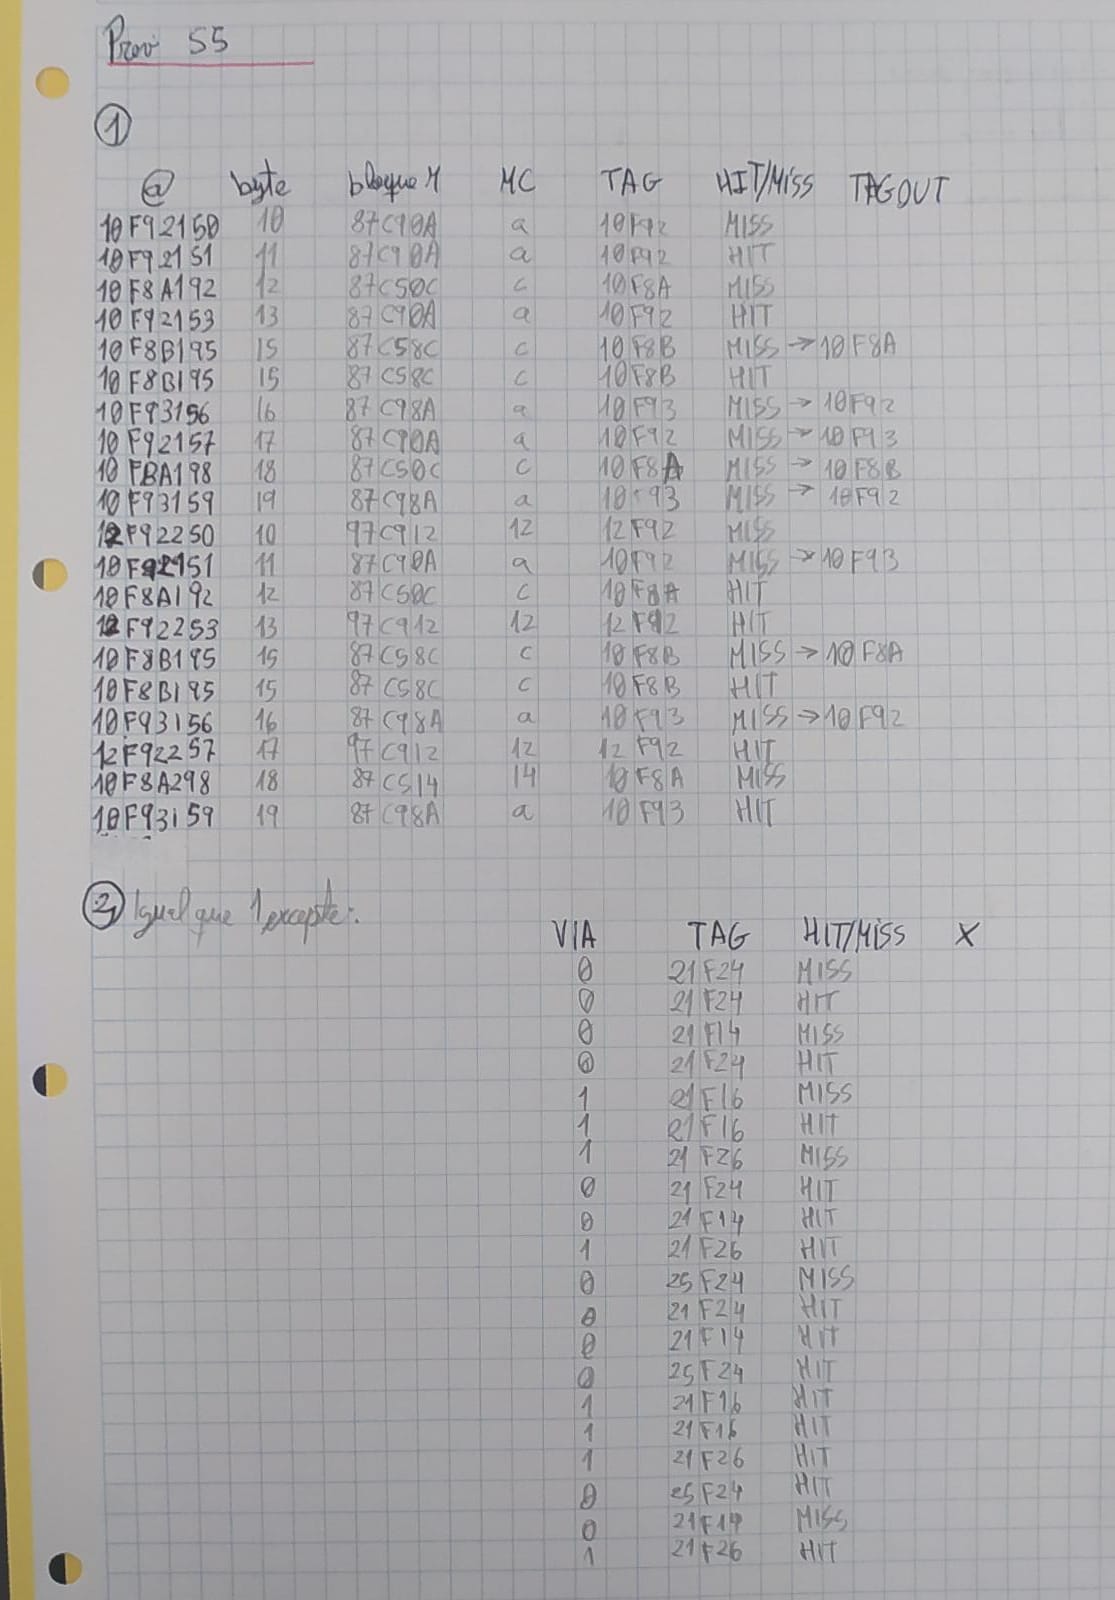 Prov 55
1
@ byte bloque M MC TAG HIT/MISS TAGOUT
10F92150 10 87C90A a 10F92 MISS
10F92151 11 87C90A a 10F92 HIT
10F8A192 12 87C50C c 10F8A MISS
10F92153 13 87C90A a 10F92 HIT
10F8B195 15 87C58C c 10F8B MISS → 10F8A
10F8B195 15 87C58C c 10F8B HIT
10F93156 16 87C98A a 10F93 MISS → 10F92
10F92157 17 87C90A a 10F92 MISS → 10F93
10FBA198 18 87C50C c 10F8A MISS → 10F8B
10F93159 19 87C98A a 10F93 MISS → 10F92
12F92250 10 97C912 12 12F92 MISS
10F92151 11 87C90A a 10F92 MISS → 10F93
10F8A192 12 87C50C c 10F8A HIT
12F92253 13 97C912 12 12F92 HIT
10F8B195 15 87C58C c 10F8B MISS → 10F8A
10F8B195 15 87C58C c 10F8B HIT
10F93156 16 87C98A a 10F93 MISS → 10F92
12F92257 17 97C912 12 12F92 HIT
10F8A298 18 87C514 14 10F8A MISS
10F93159 19 87C98A a 10F93 HIT
2 Igual que 1 excepte:
VIA TAG HIT/MISS X
0 21F24 MISS
0 21F24 HIT
0 21F14 MISS
0 21F24 HIT
1 21F16 MISS
1 21F16 HIT
1 21F26 MISS
0 21F24 HIT
0 21F14 HIT
1 21F26 HIT
0 25F24 MISS
0 21F24 HIT
0 21F14 HIT
0 25F24 HIT
1 21F16 HIT
1 21F16 HIT
1 21F26 HIT
0 25F24 HIT
0 21F14 MISS
1 21F26 HIT